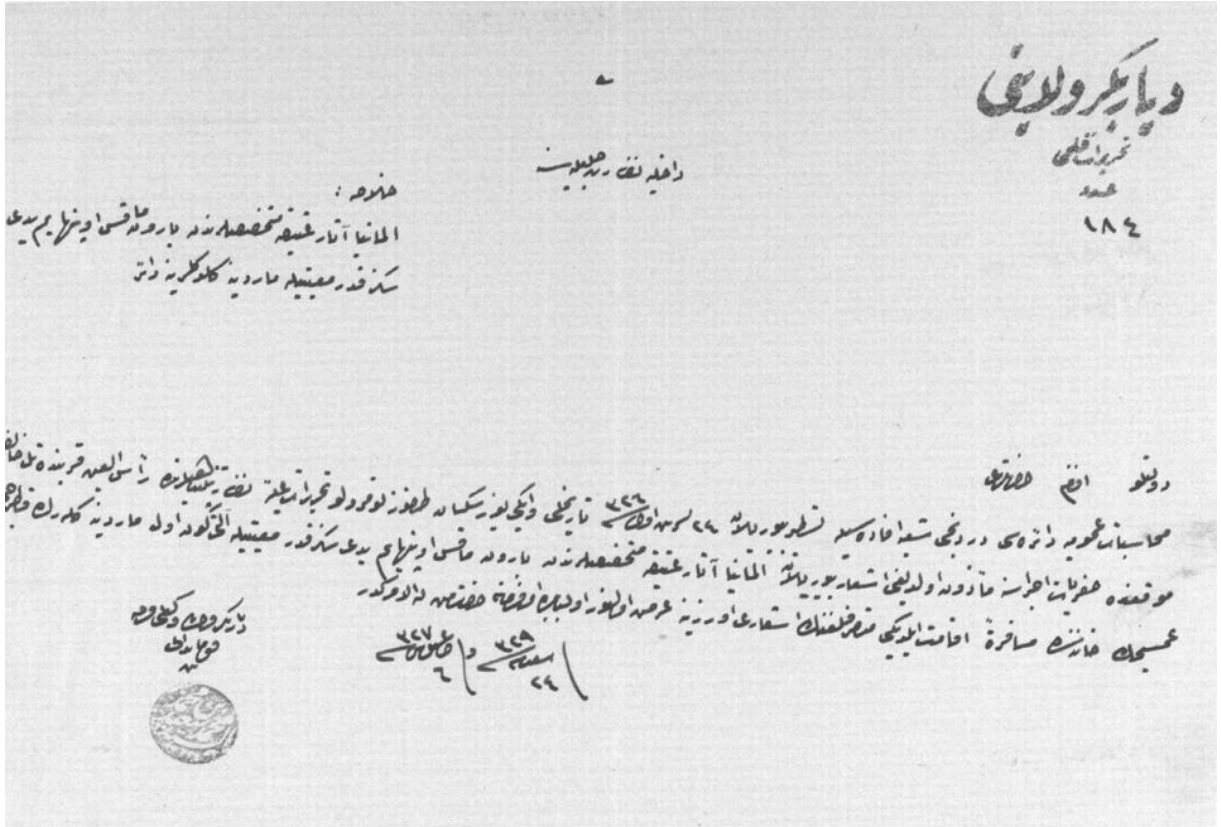 دیاربکر ولایتی
تحریرات قلمی
عدد
١٨٤
داخلیه نظارت جلیله‌سنه
خلاصه :
المانیا آثار عتیقه متخصصلرندن بارون ماقس اوپنهایم یدی
سکز نفر معیتیله ماردینه کلدکلرینه دائر
دولتلو افندم حضرتلری
محاسبات عمومیه دائره‌سی دردنجی شعبه افاده‌سیله ٢٤ ٣٢٦ تاریخلی وایکیوز سکسان طقوز نومرولو تحریرات علیه نظارتپناهیلرنده رأس العین قربنده تل حلف
موقعنده حفریات اجراسنه مأذون اولدیغی اشعار بیوریلان المانیا آثار عتیقه متخصصلرندن بارون ماقس اوپنهایم یدی سکز نفر معیتیله ماردینه کلەرك
خانه‌سنده مسافرةً اقامت ایلدیکی متصرفلغنك اشعاری اوزرینه عرض اولنور اولبابده امر
٢٤ ٣٢٩ و ٦ ٣٢٧
دیاربکر والی وکیلی